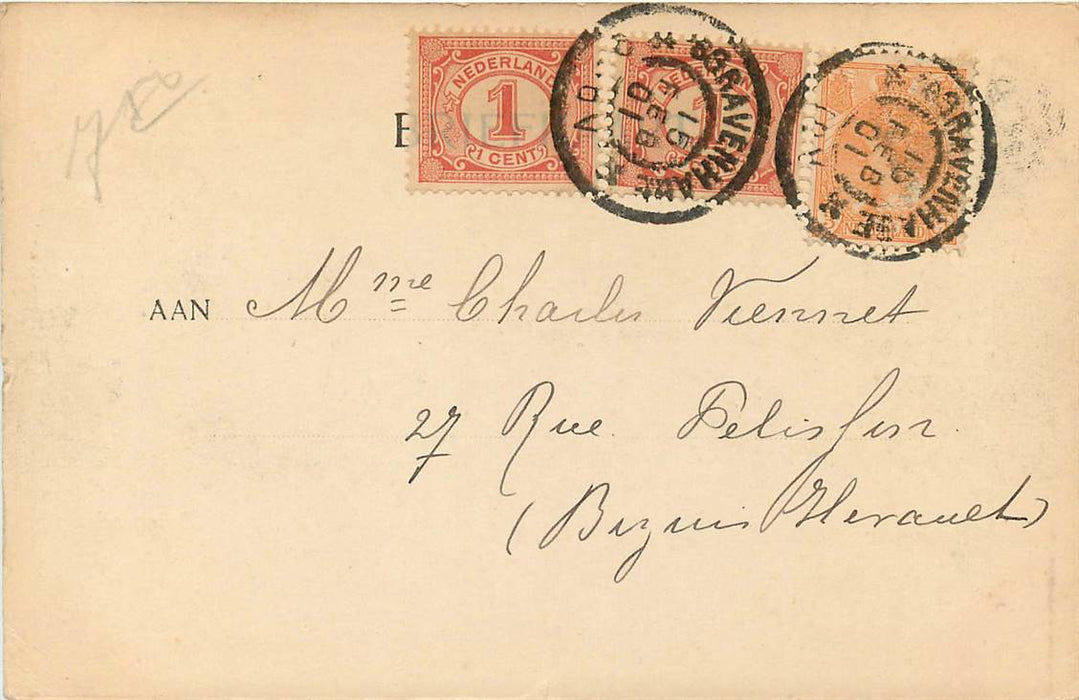 7 50
NEDERLAND
1
1 CENT
NEDERLAND
1
'S GRAVENHAGE
15 FEB 01
'S GRAVENHAGE
15 FEB 01
AAN Mme Charles Viennet
27 Rue Pelisson
(Beziers Herault)